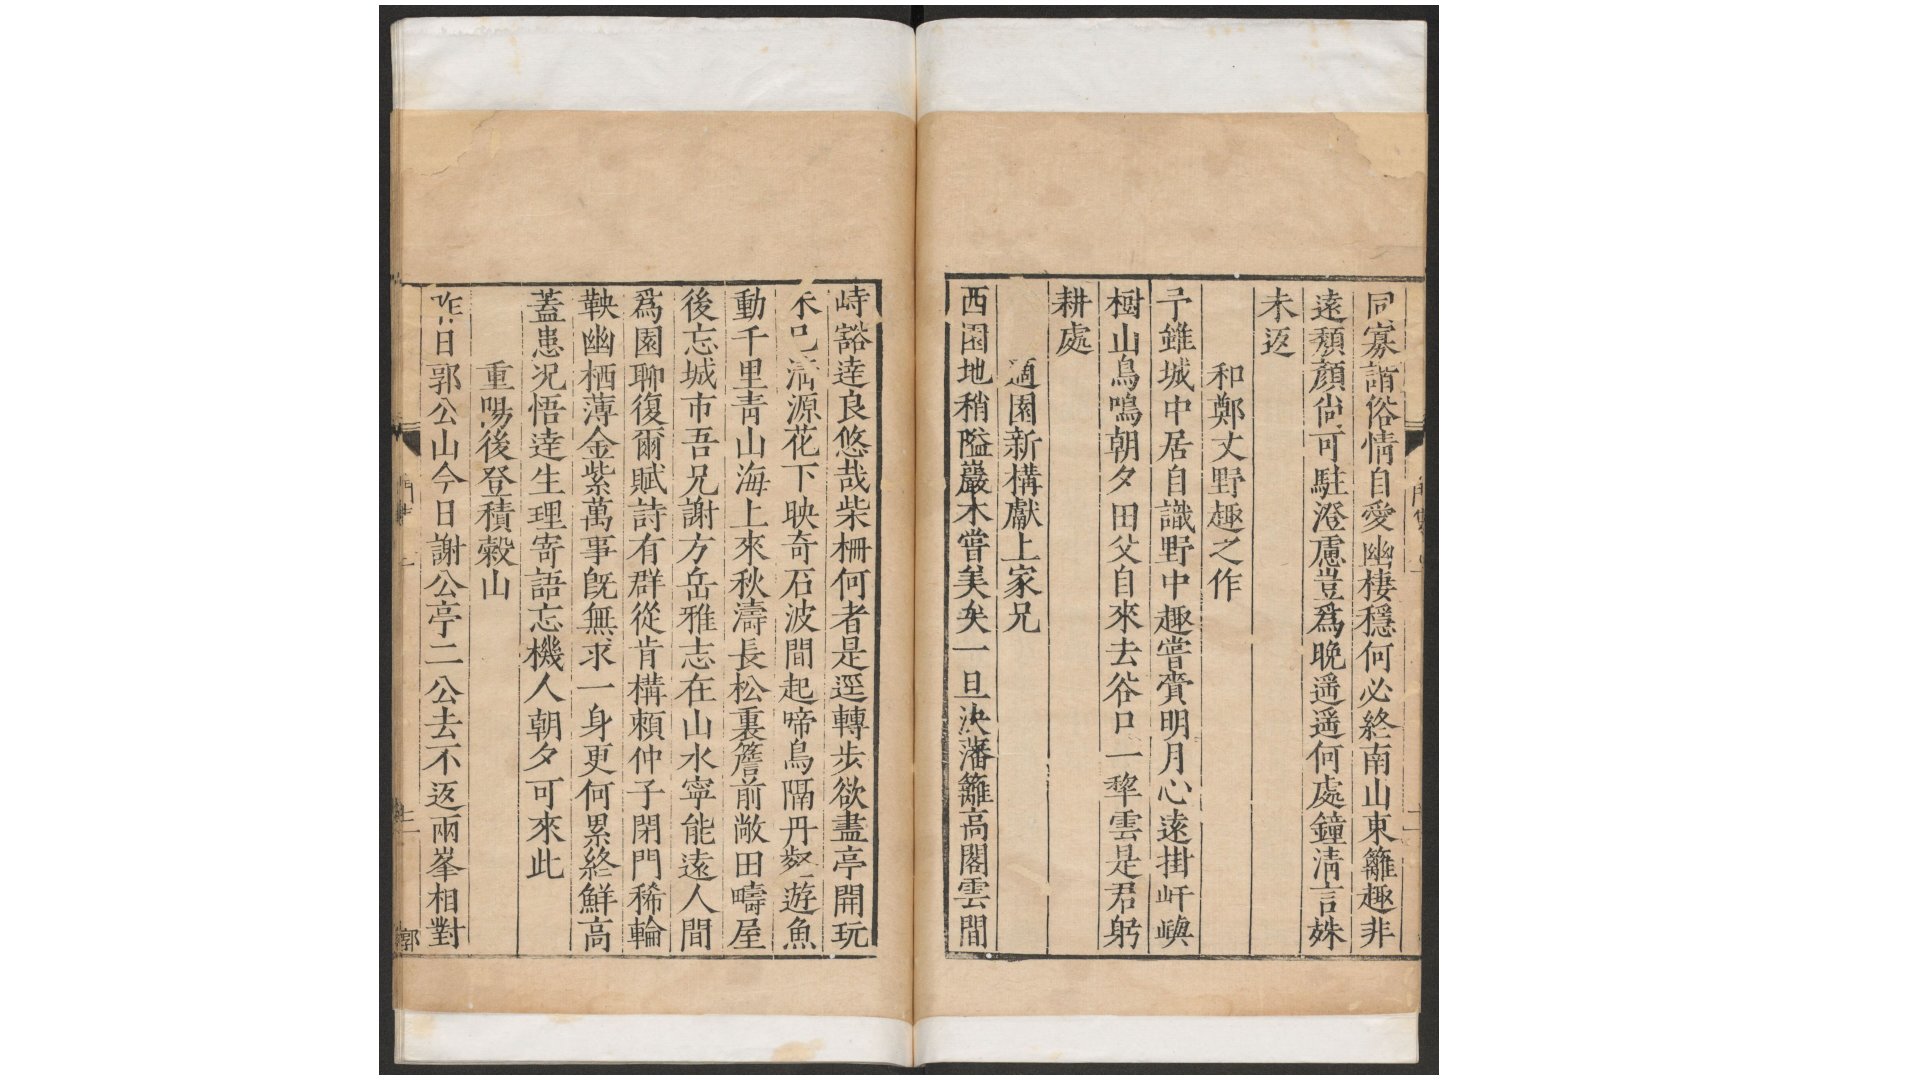 同寡諧俗情自愛幽棲穩何必終南山東籬趣非
遠頹顏尙可駐澄慮豈爲晚遥遥何處鐘淸言姝
未返
和鄭丈野趣之作
予雖城中居自識野中趣嘗賷明月心遠掛屽嶼
樹山鳥鳴朝夕田父自來去谷口一犂雲是君躬
耕處
適園新構獻上家兄
西園地稍隘巖木嘗美矣一旦決藩籬高閣雲間
峙豁達良悠哉柴柵何者是逕轉步欲盡亭開玩
不已淸源花下映奇石波間起啼鳥隔丹壑遊魚
動千里靑山海上來秋濤長松裏簷前敞田疇屋
後忘城市吾兄謝方岳雅志在山水寧能遠人間
爲園聊復爾賦詩有群從肯構頼仲子閉門稀輪
鞅幽栖薄金紫萬事旣無求一身更何累終鮮高
蓋患況悟達生理寄語忘機人朝夕可來此
重陽後登積榖山
昨日郭公山今日謝公亭二公去不返兩峯相對
郭